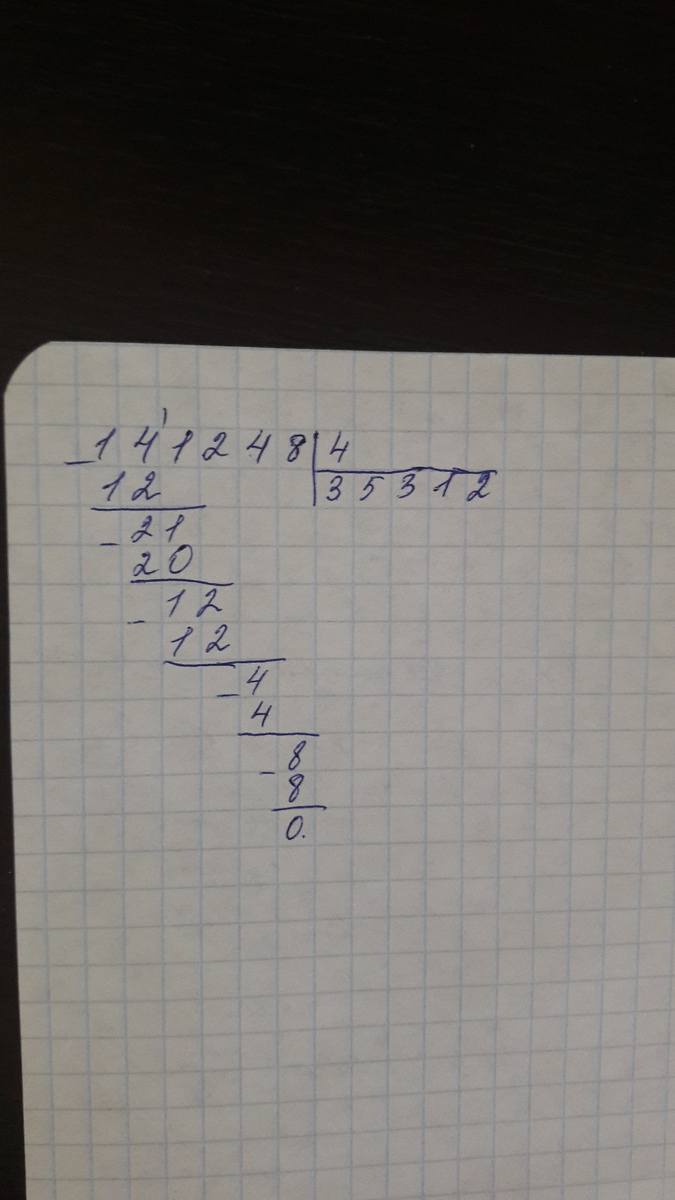 141248 4
12 35312
- 21
20
- 12
12
- 4
4
- 8
8
0.